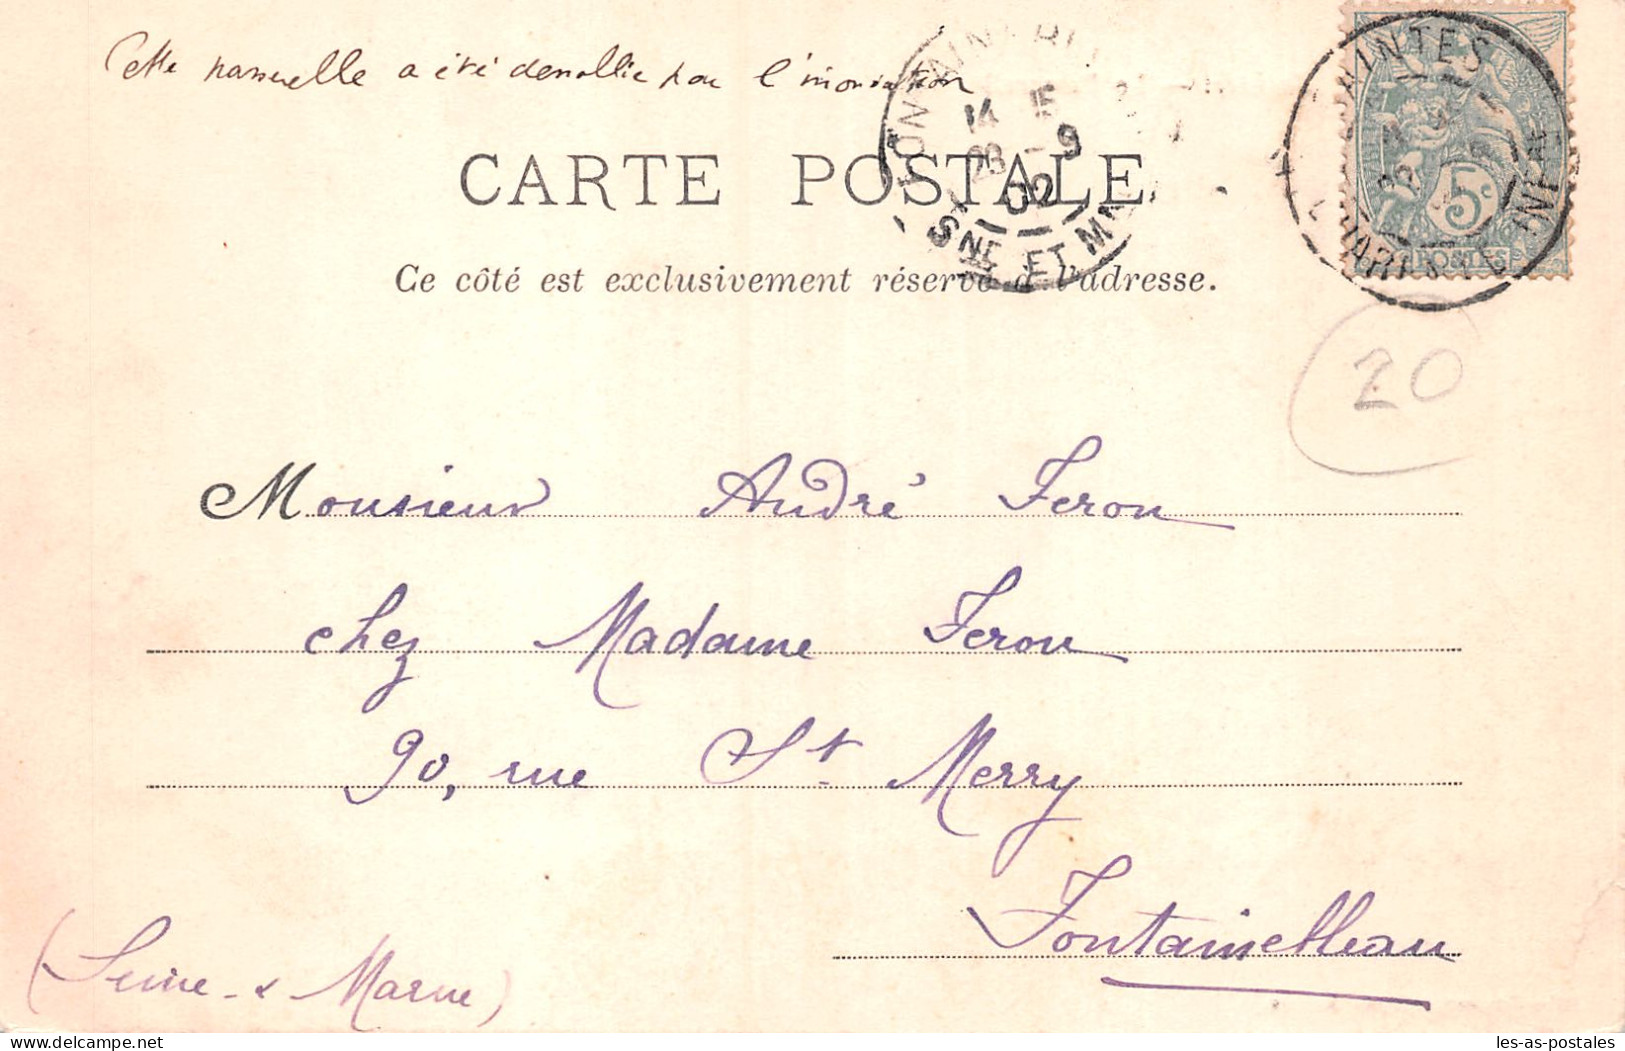 Cette passerelle a été démolie par l'inondation
CARTE POSTALE
Ce côté est exclusivement réservé à l'adresse.
14 15
28 -9
02
SNE ET MNE
5c
POSTES
20
Monsieur André Feron
chez Madame Feron
90, rue St Merry
Fontainebleau
(Seine & Marne)
delcampe.net
les-as-postales